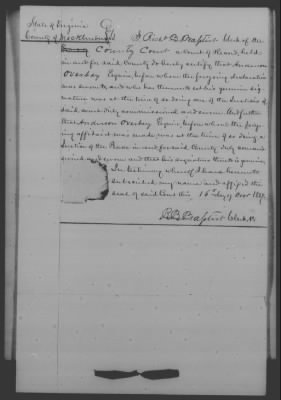 State of Virginia
County of Mecklenburg I Richd B Baptist Clerk of the
County Court a Court of Record, held
in and for said County do hereby certify that Anderson
Overbey Esquire, before whom the foregoing declaration
was sworn to, and who has thereunto set his genuine sig
nature was at the time of so doing one of the Justices of
said County duly commissioned and sworn. And further
that Anderson Overbey Esquire, before whom the fore
going affidavit was made was at the time of so doing a
Justice of the Peace in and for said County duly commis
sioned and sworn and that his signature thereto is genuine
In testimony whereof I have hereunto
subscribed my name and affixed the
seal of said Court this, 16th day of
R B Baptist Clerk